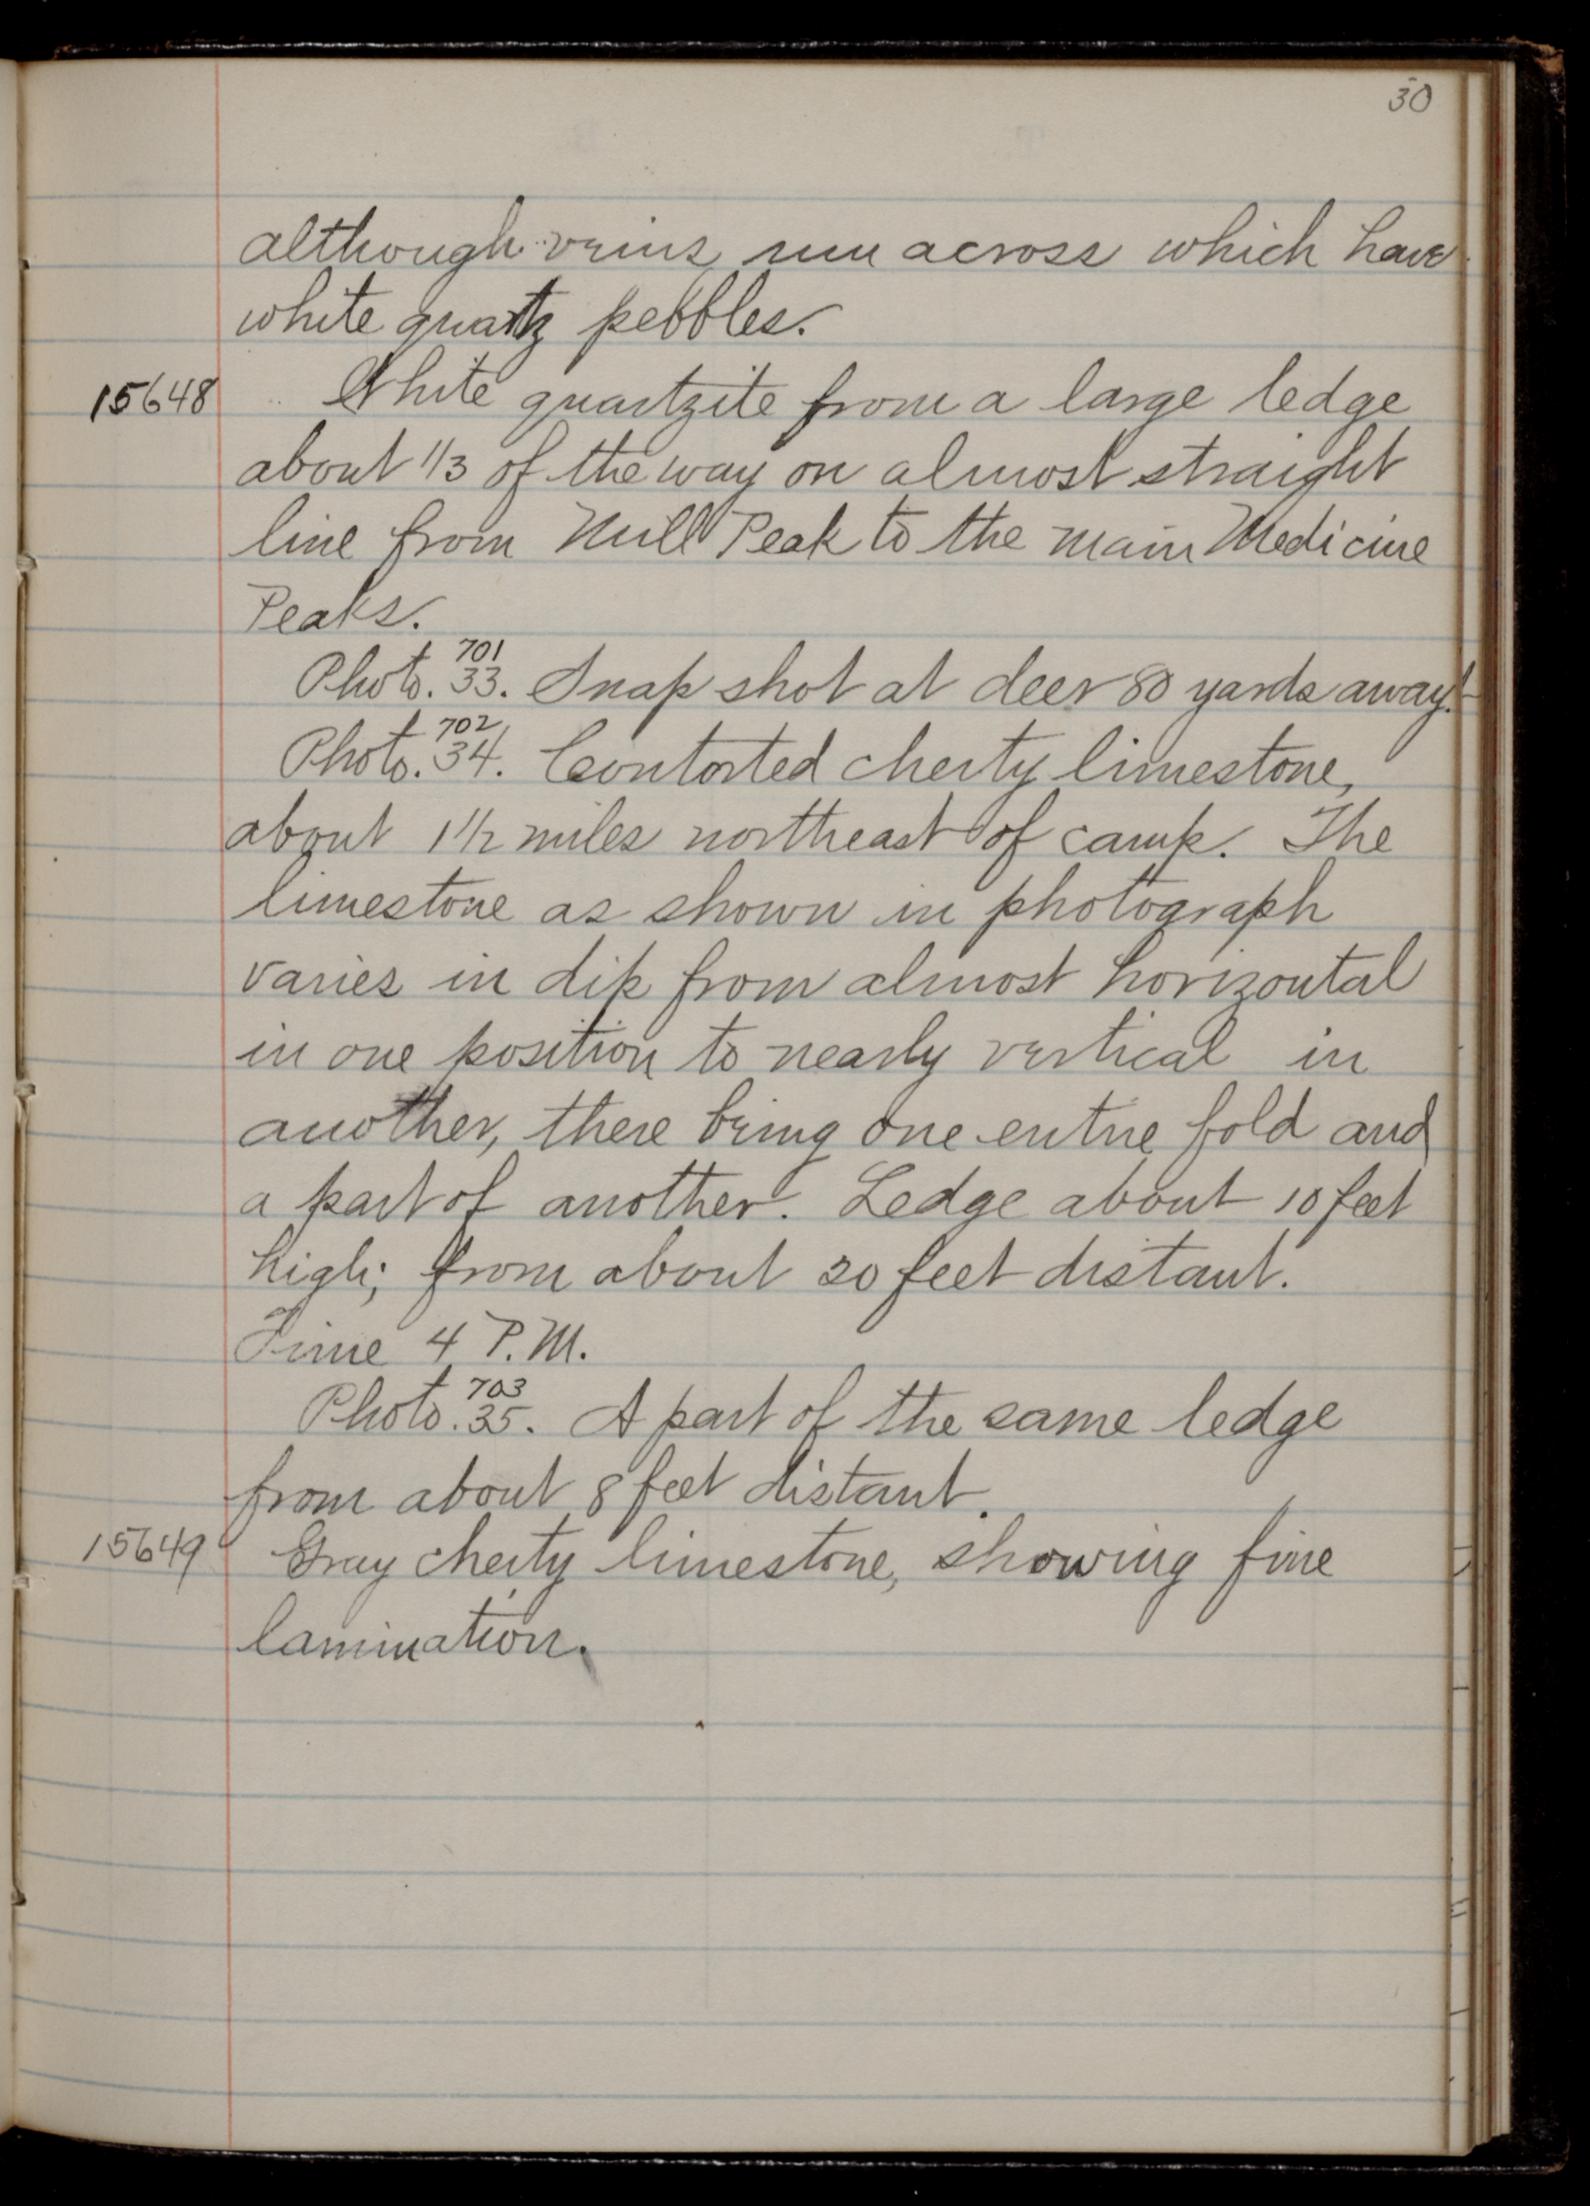 30
although veins run across which have
white quartz pebbles.
15648 White quartzite from a large ledge
about 1/3 of the way on almost straight
line from Mill Peak to the main Medicine
Peaks.
701
Photo. 33. Snap shot at deer 80 yards away!
702
Photo. 34. Contorted cherty limestone,
about 1 1/2 miles northeast of camp. The
limestone as shown in photograph
varies in dip from almost horizontal
in one position to nearly vertical in
another, there being one entire fold and
a part of another. Ledge about 10 feet
high; from about 20 feet distant.
Time 4 P.M.
703
Photo. 35. A part of the same ledge
from about 8 feet distant.
15649 Gray cherty limestone, showing fine
lamination.